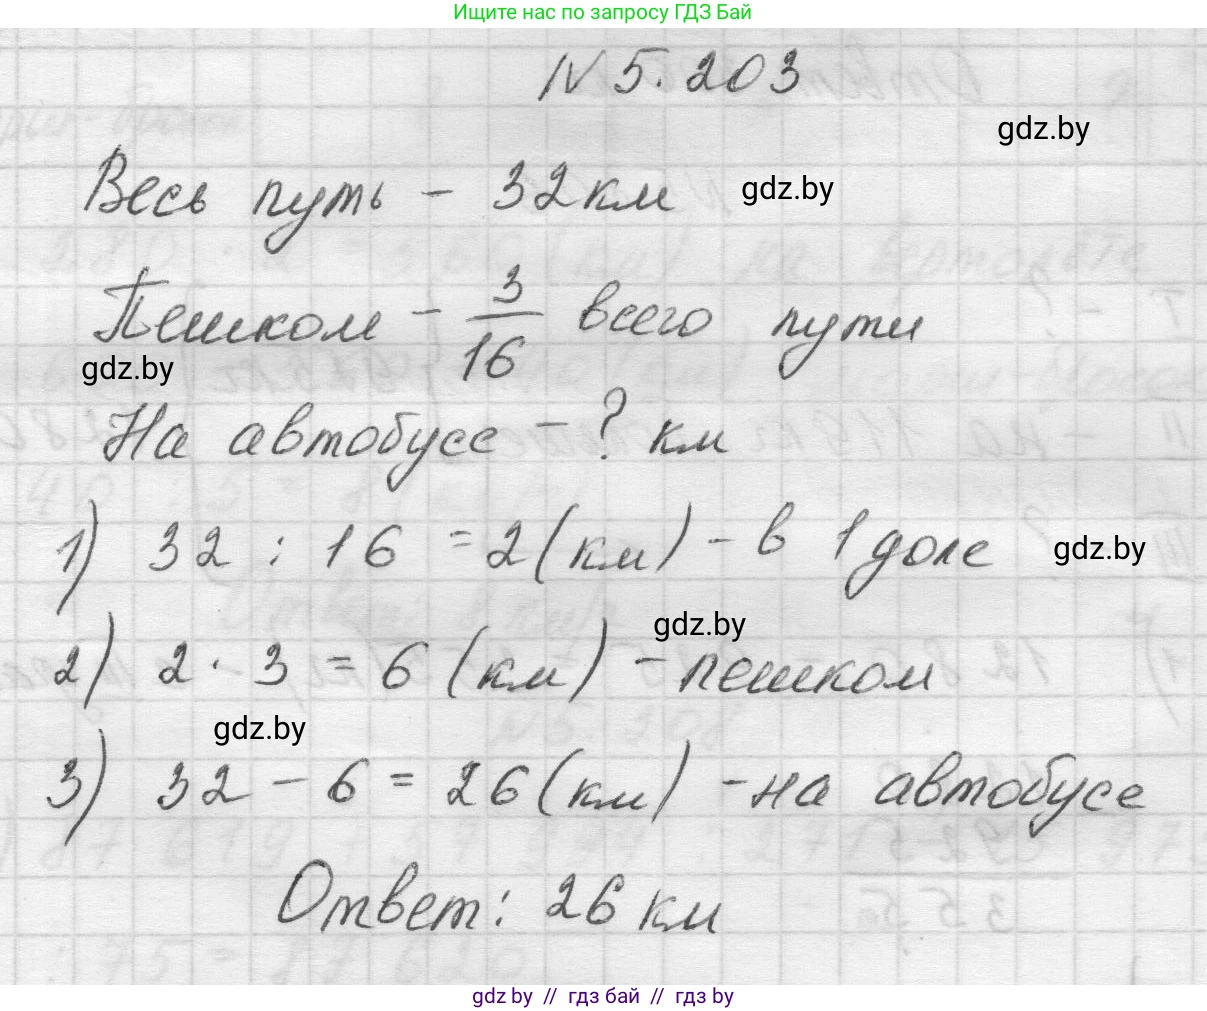 Ищите нас по запросу ГДЗ Бай
N 5.203
gdz.by
Весь путь - 32 км
gdz.by
Пешком - 3/16 всего пути
gdz.by
На автобусе - ? км
1) 32 : 16 = 2 (км) - в 1 доле
gdz.by
gdz.by
2) 2 · 3 = 6 (км) - пешком
gdz.by
3) 32 - 6 = 26 (км) - на автобусе
Ответ: 26 км
gdz by // гдз бай // гдз by